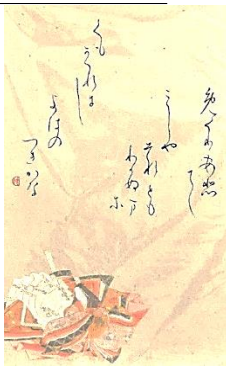 めくりあひ
て
みしや
それとも
わかぬま
に
くも
かくれに
し
よはの
つきかな